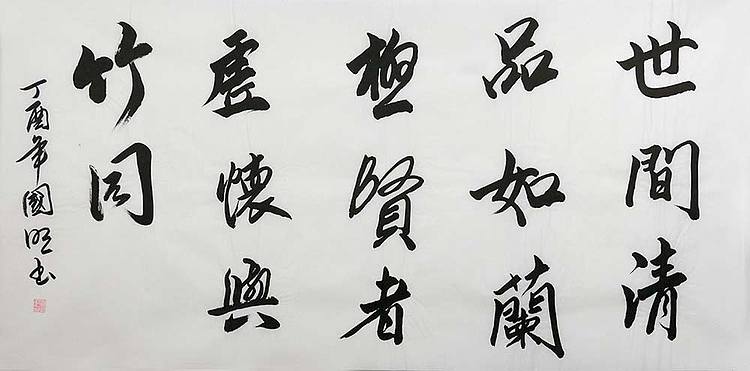 世間清
品如蘭
極賢者
虛懷與
竹同
丁酉年國明书